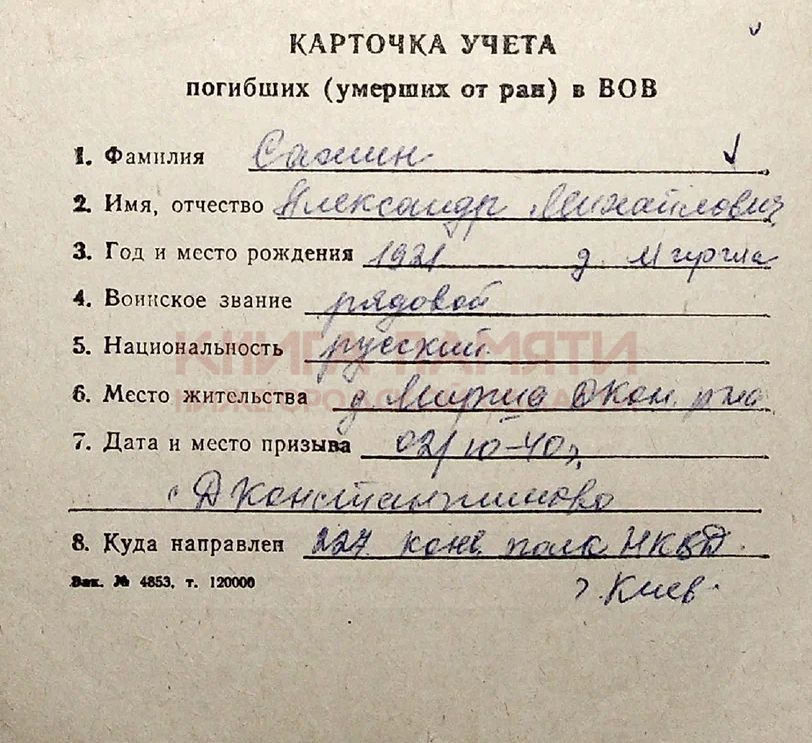 КАРТОЧКА УЧЕТА
погибших (умерших от ран) в ВОВ
1. Фамилия Сахин
2. Имя, отчество Александр Михайлович
3. Год и место рождения 1921 д.
4. Воинское звание рядовой
КНИГА ПАМЯТИ
5. Национальность русский
6. Место жительства д.
7. Дата и место призыва 02/10-40г.
с. Д Константиново
8. Куда направлен 227 конв. полк НКВД.
Зак. № 4853, т. 120000
г. Киев.